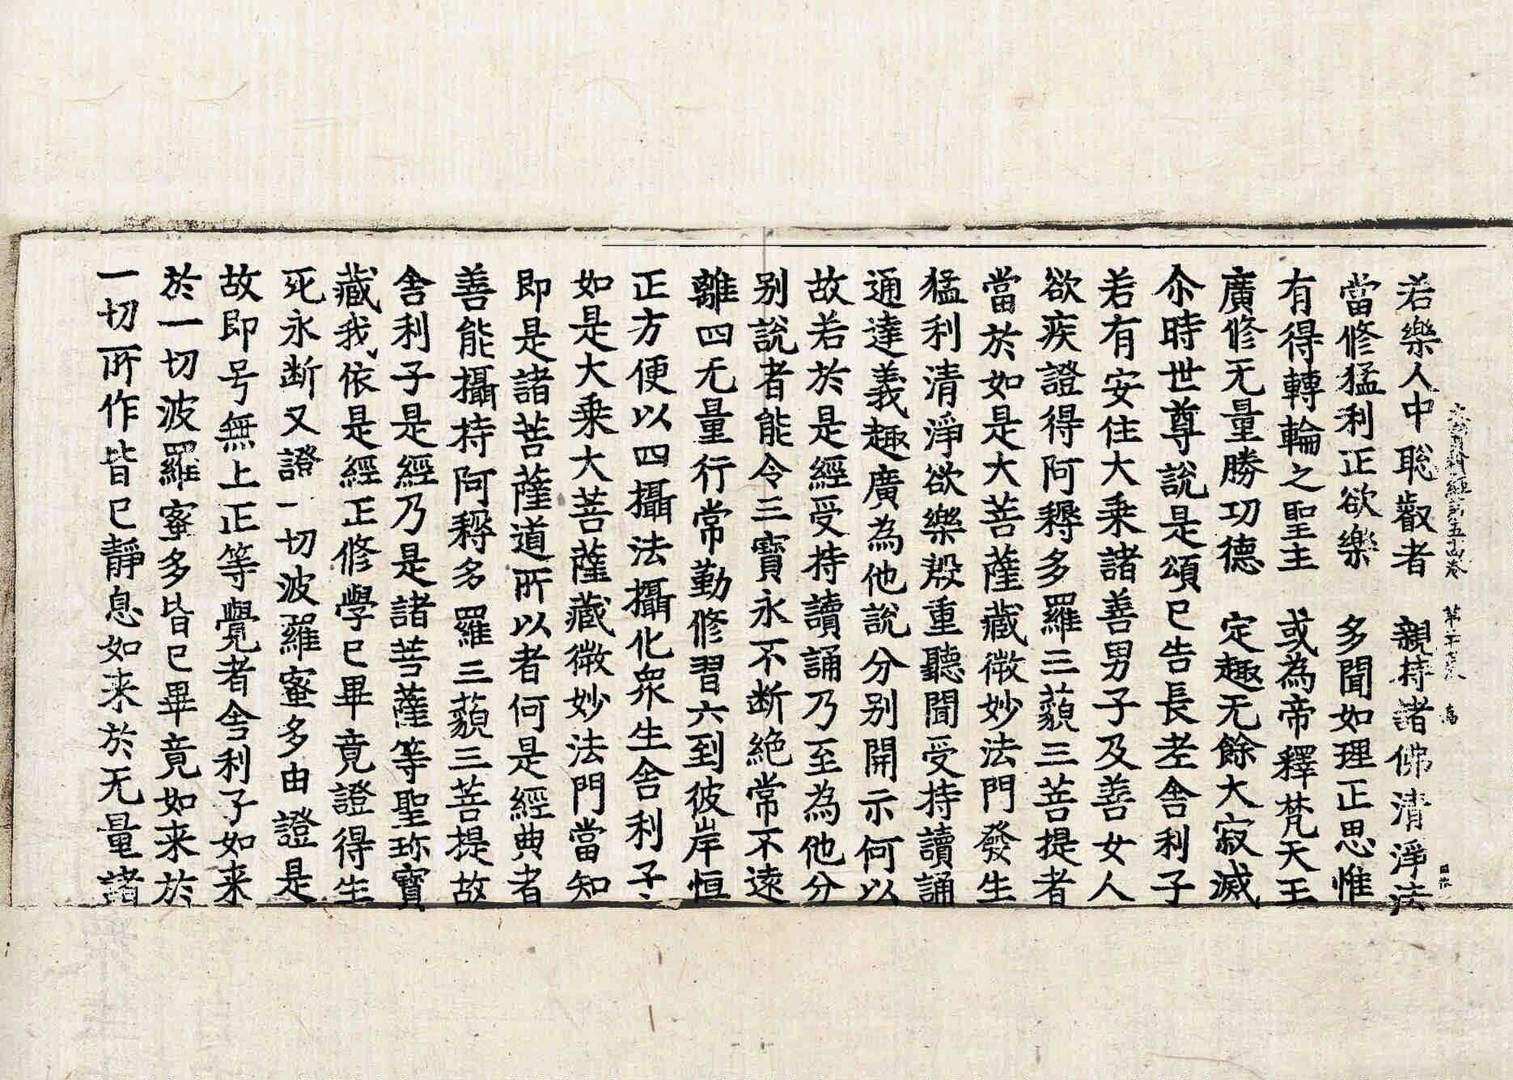 大寶積經第五十四卷 第 張 鳥
若樂人中聡叡者 親持諸佛清淨法
當修猛利正欲樂 多聞如理正思惟
有得轉輪之聖主 或為帝釋梵天王
廣修无量勝功德 定趣无餘大寂滅
尒時世尊說是頌已告長老舍利子
若有安住大乘諸善男子及善女人
欲疾證得阿耨多羅三藐三菩提者
當於如是大菩薩藏微妙法門發生
猛利清淨欲樂殷重聽聞受持讀誦
通達義趣廣為他說分別開示何以
故若於是經受持讀誦乃至為他分
別說者能令三寶永不断絶常不遠
離四无量行常勤修習六到彼岸恒
正方便以四攝法攝化衆生舍利子
如是大乘大菩薩藏微妙法門當知
即是諸菩薩道所以者何是經典者
善能攝持阿耨多羅三藐三菩提故
舍利子是經乃是諸菩薩等聖珎寶
藏我依是經正修學已畢竟證得生
死永断又證一切波羅蜜多由證是
故即号無上正等覺者舍利子如来
於一切波羅蜜多皆已畢竟如来於
一切所作皆已靜息如来於无量諸